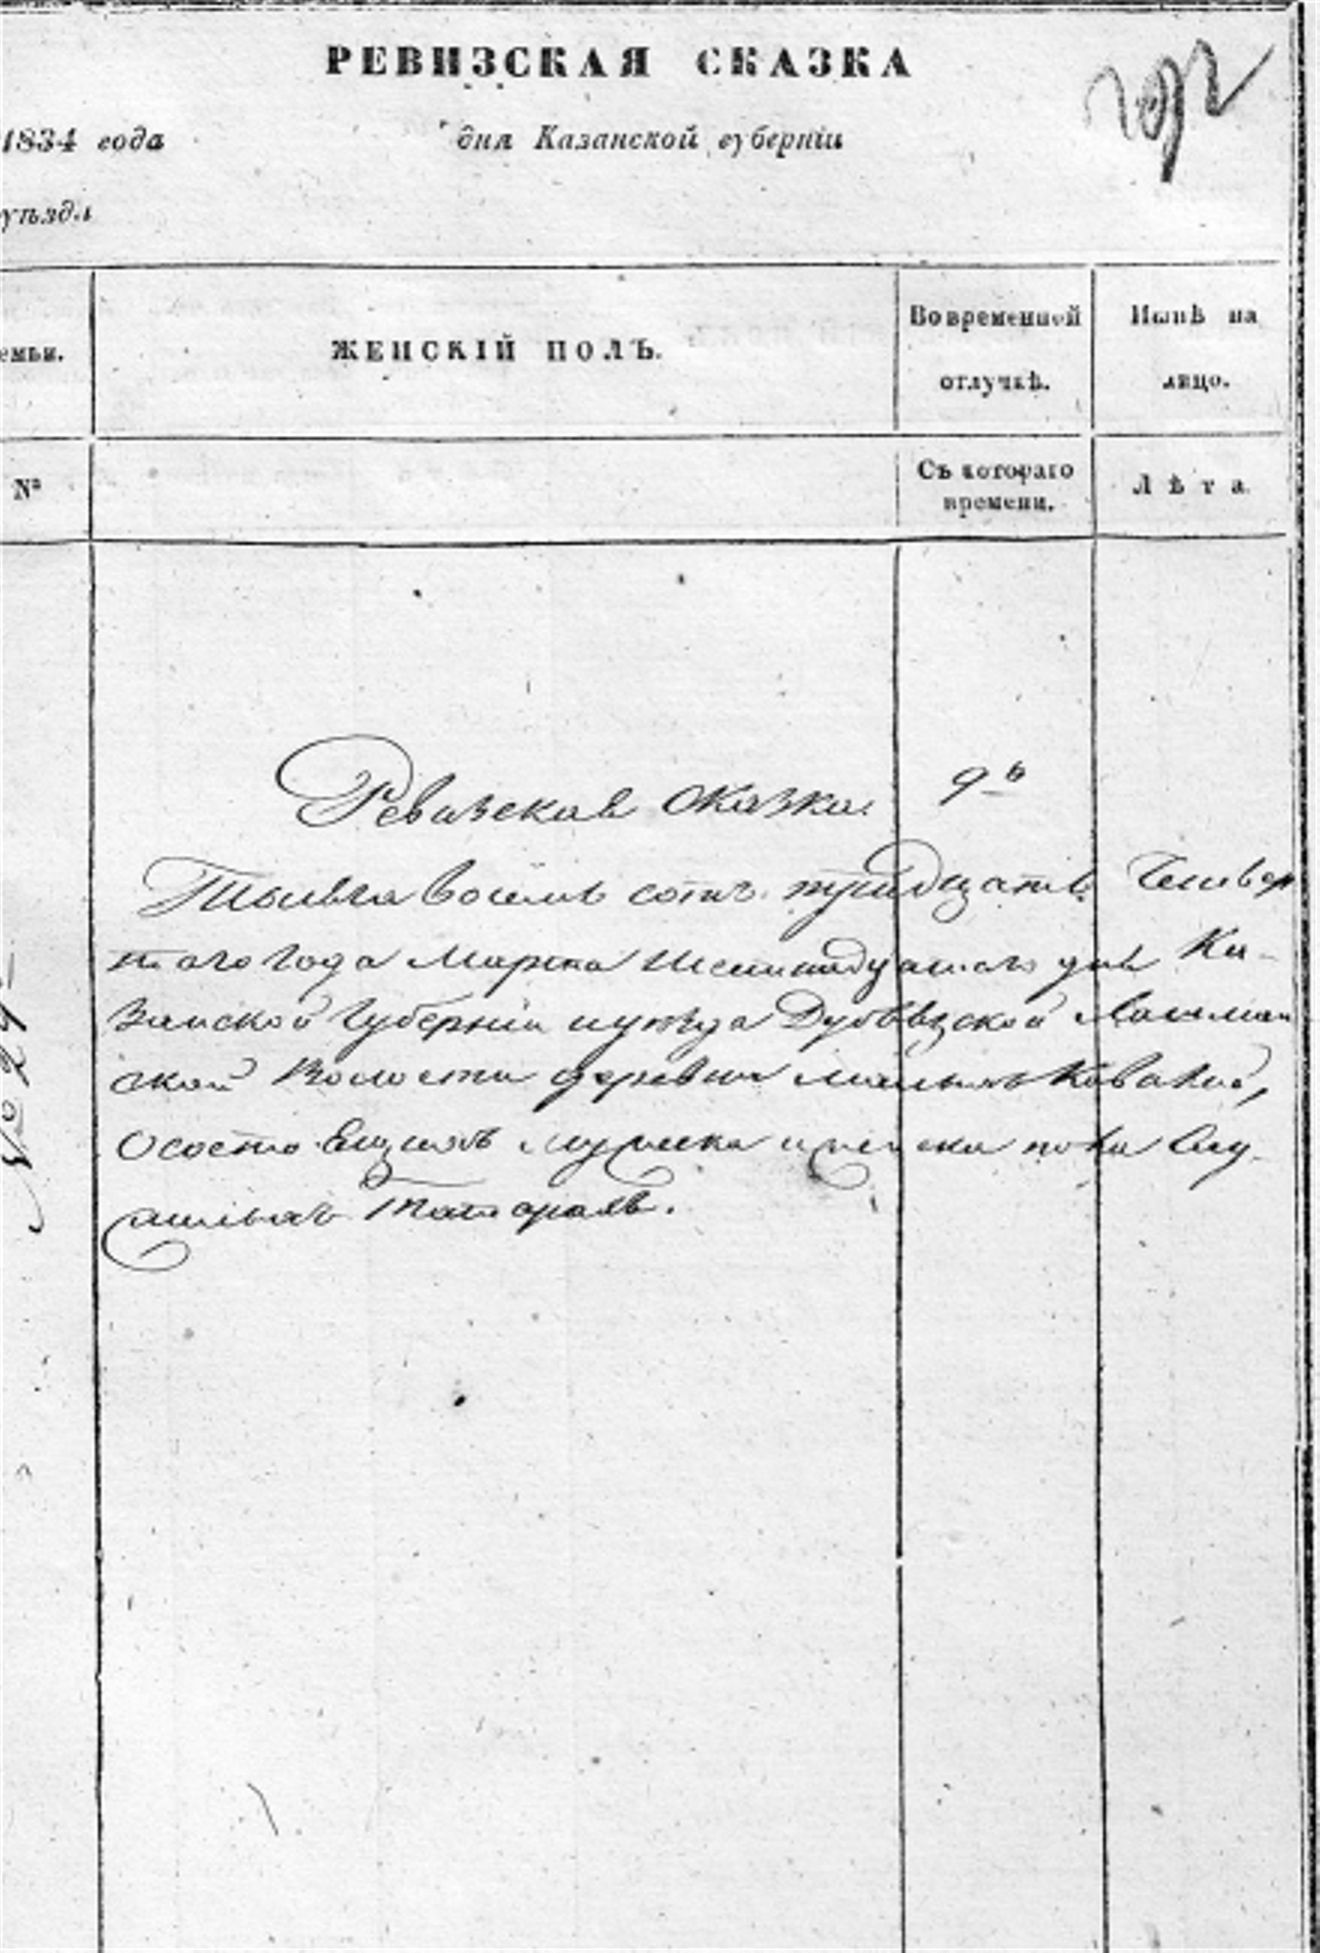 РЕВИЗСКАЯ СКАЗКА
1834 года дня Казанской губерніи
уѣзда
емьи. ЖЕНСКІЙ ПОЛЪ. Во временной отлучкѣ. Нынѣ на лицо.
№ Съ котораго времени. Лѣта
Ревизская сказка.
Тысяча восемь сотъ тридцать Четвер
таго года Марта дня Ка-
занской Губерніи иуѣзда Лашман
ской Волости деревни
Осостоящихъ мужеска иженска пола Слу
жилыхъ Татарахъ.